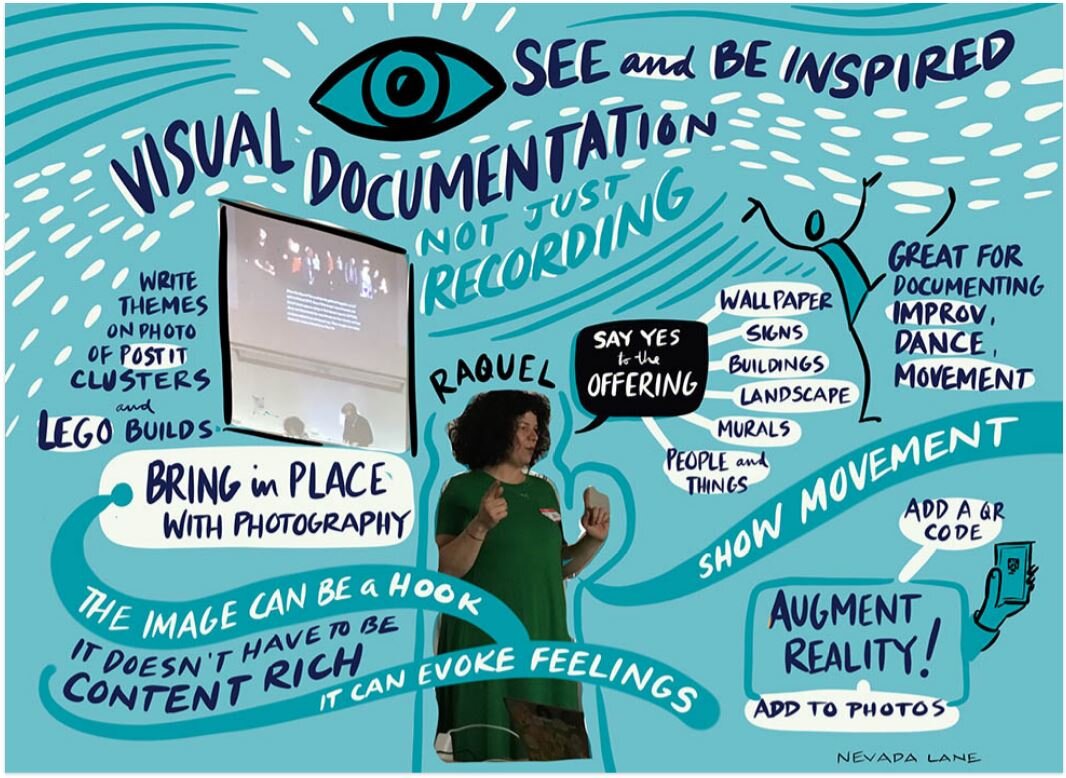 SEE and BE INSPIRED
VISUAL DOCUMENTATION
NOT JUST
RECORDING
WRITE
THEMES
ON PHOTO
OF POST IT
CLUSTERS
and
LEGO BUILDS
BRING in PLACE
WITH PHOTOGRAPHY
THE IMAGE CAN BE a HOOK
IT DOESN'T HAVE TO BE
CONTENT RICH
IT CAN EVOKE FEELINGS
RAQUEL
SAY YES
to the
OFFERING
WALLPAPER
SIGNS
BUILDINGS
LANDSCAPE
MURALS
PEOPLE and
THINGS
GREAT FOR
DOCUMENTING
IMPROV,
DANCE,
MOVEMENT
SHOW MOVEMENT
ADD A QR
CODE
AUGMENT
REALITY!
ADD TO PHOTOS
NEVADA LANE